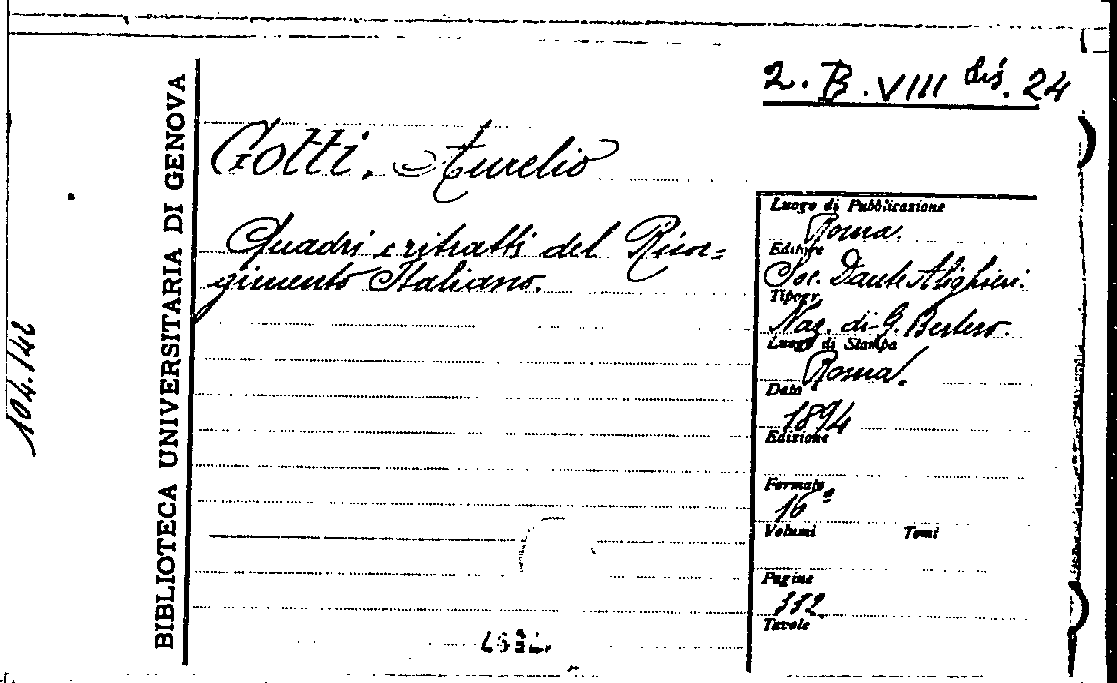 2. B. VIII bis. 24
BIBLIOTECA UNIVERSITARIA DI GENOVA
104.142
Gotti, Aurelio
Quadri e ritratti del Risor=
gimento Italiano.
Luogo di Pubblicazione
Roma.
Editore
Soc. Dante Alighieri.
Tipogr.
Naz. di G. Bertero.
Luogo di Stampa
Roma.
Data
1894
Edizione
Formato
16º
Volumi Tomi
Pagine
Tavole